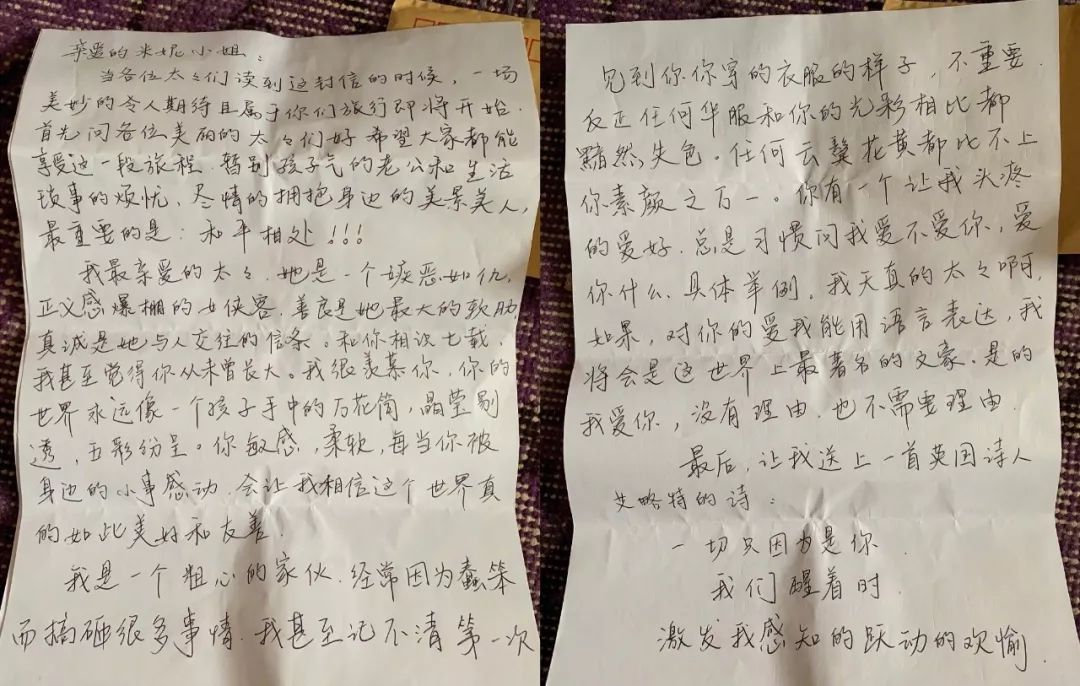 亲爱的米妮小姐：
当各位太々们读到这封信的时候，一场
美妙的令人期待且属于你们旅行即将开始.
首先问各位美丽的太々们好 希望大家都能
享受这一段旅程. 暂别孩子气的老公和生活
琐事的烦忧, 尽情的拥抱身边的美景美人,
最重要的是: 和平相处!!!
我最亲爱的太々, 她是一个嫉恶如仇,
正义感爆棚的女侠客, 善良是她最大的软肋
真诚是她与人交往的信条。和你相识七载,
我甚至觉得你从未曾长大。我很羡慕你, 你的
世界永远像一个孩子手中的万花筒, 晶莹剔
透, 五彩纷呈。你敏感, 柔软, 每当你被
身边的小事感动, 会让我相信这个世界真
的如此美好和友善.
我是一个粗心的家伙, 经常因为蠢笨
而搞砸很多事情. 我甚至记不清第一次
见到你你穿的衣服的样子, 不重要.
反正任何华服和你的光彩相比都
黯然失色。任何云鬓花黄都比不上
你素颜之万一。你有一个让我头疼
的爱好. 总是习惯问我爱不爱你, 爱
你什么. 具体举例. 我天真的太々啊,
如果, 对你的爱我能用语言表达, 我
将会是这世界上最著名的文豪. 是的
我爱你, 没有理由. 也不需要理由.
最后, 让我送上一首英国诗人
艾略特的诗:
一切只因为是你.
我们醒着时.
激发我感知的跃动的欢愉.